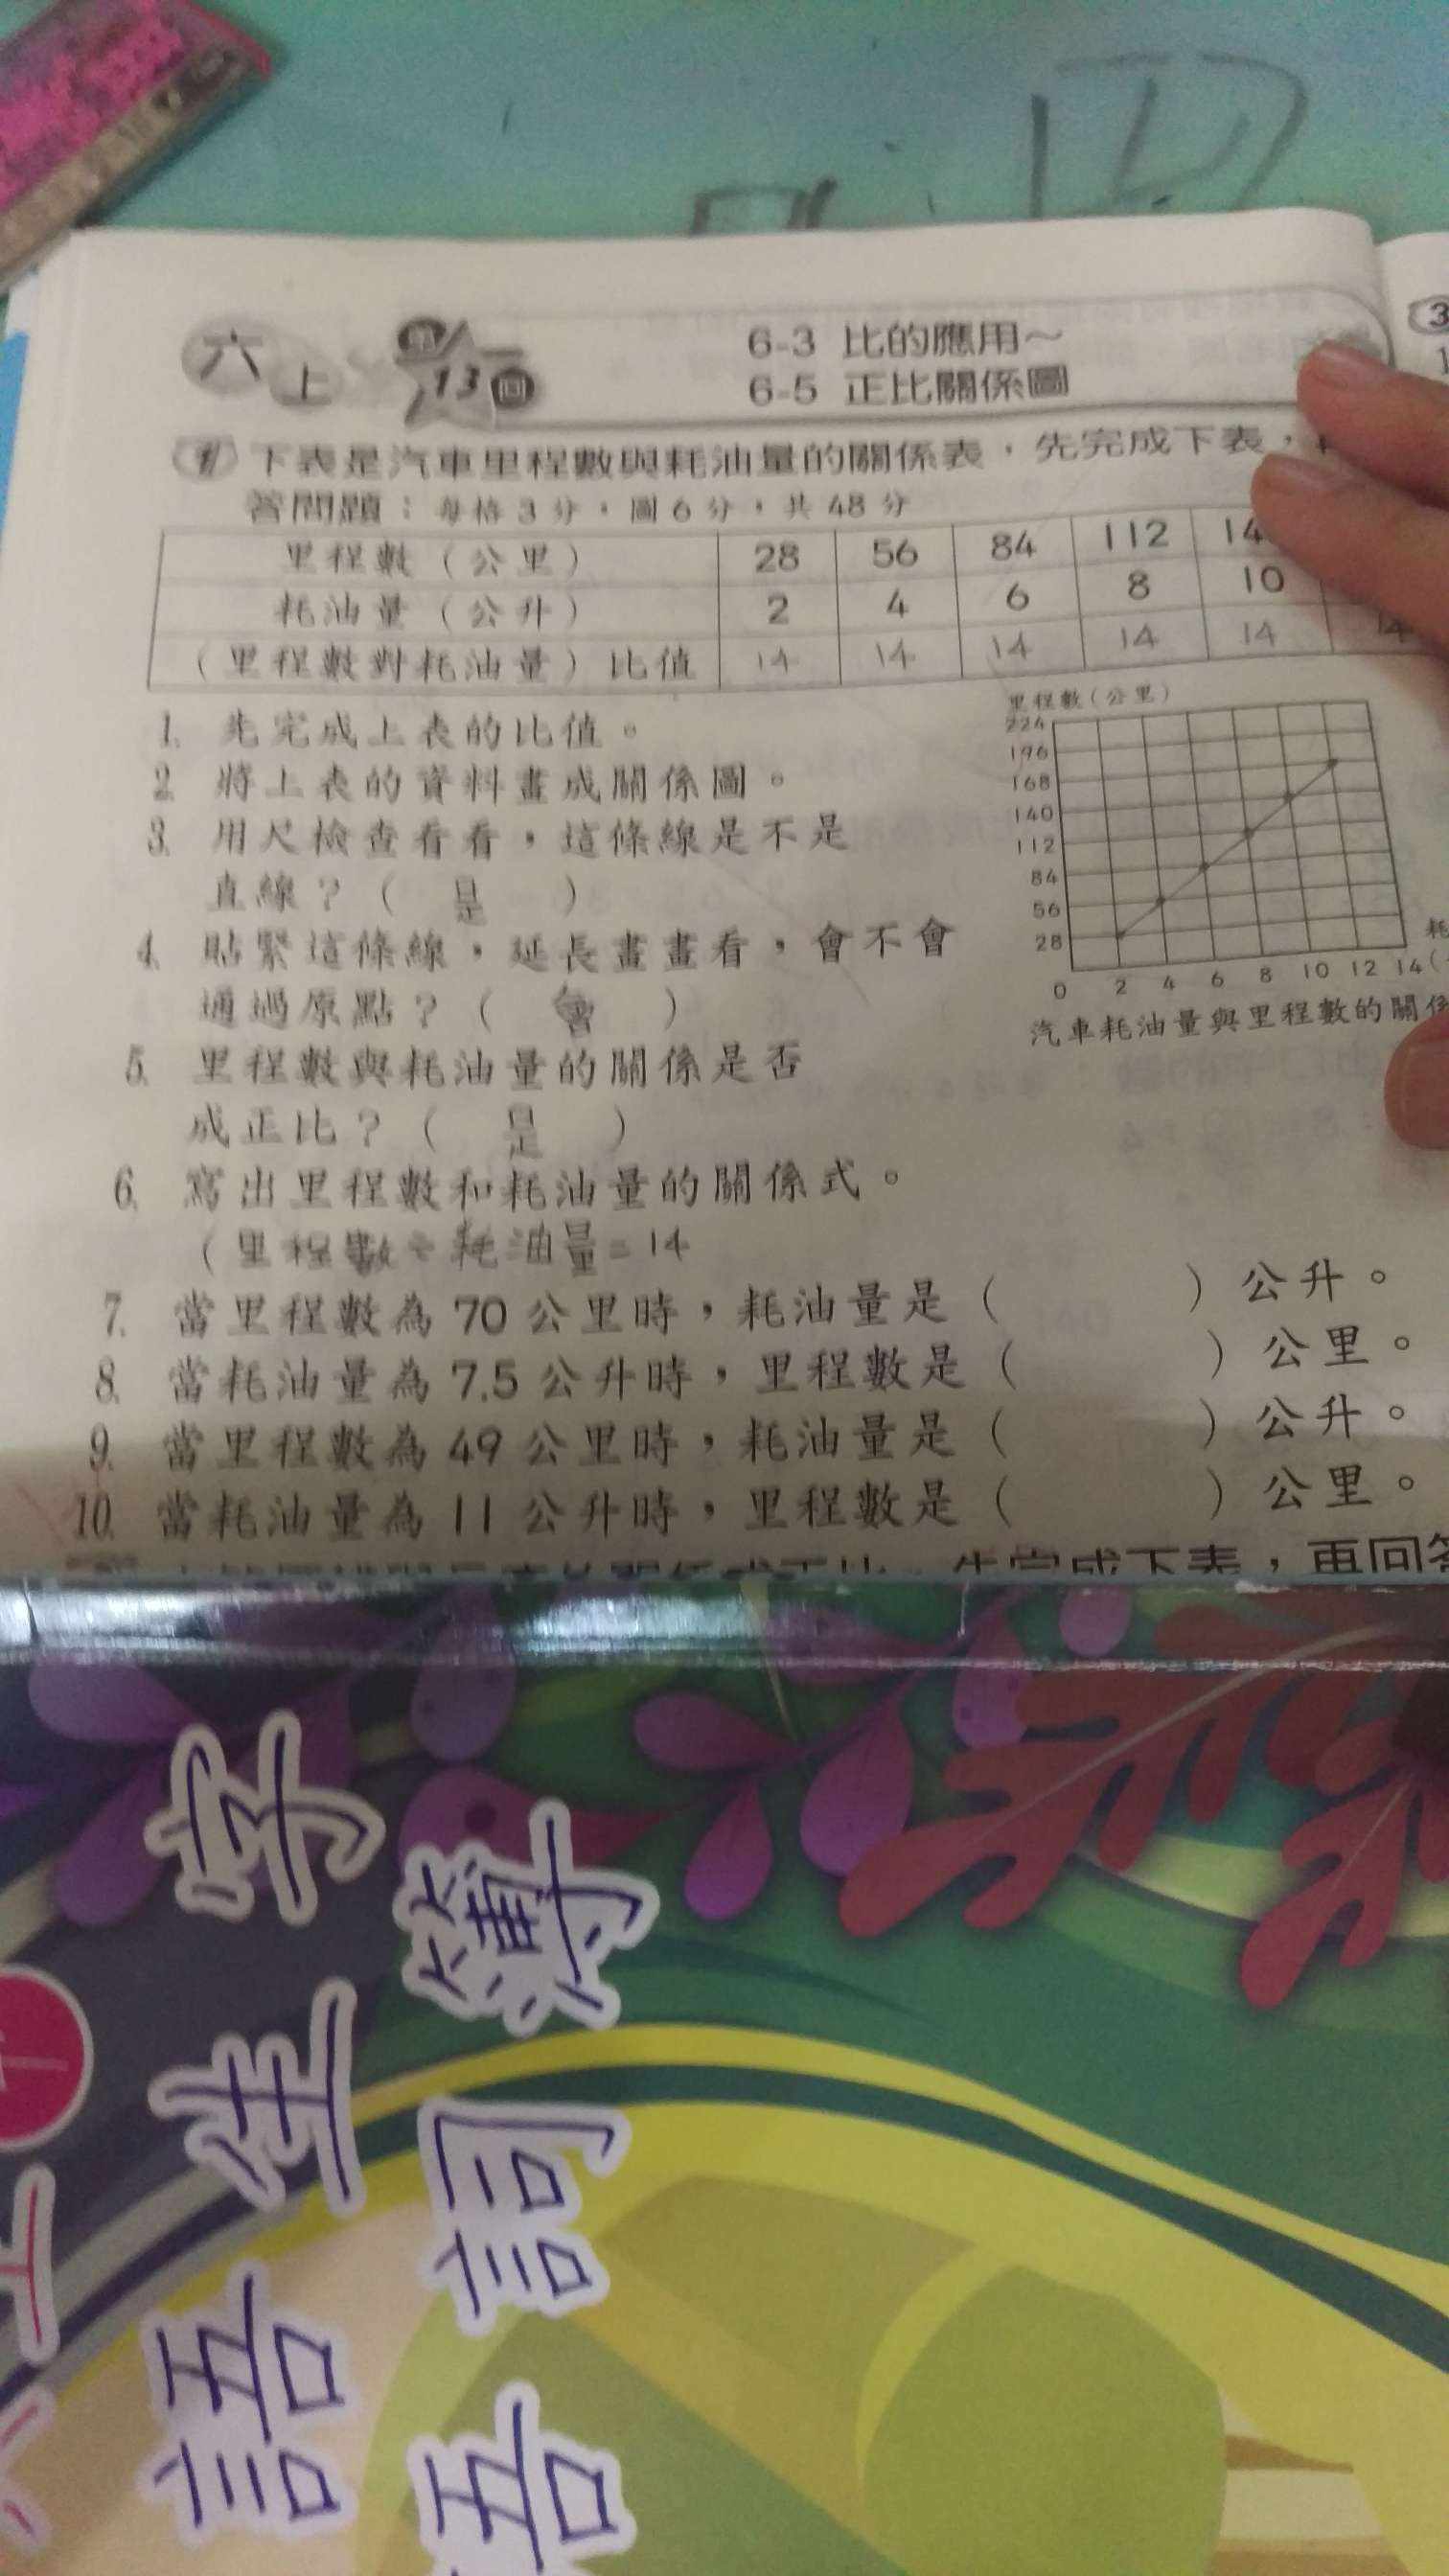 六上 第13回
6-3 比的應用～
6-5 正比關係圖
1 下表是汽車里程數與耗油量的關係表，先完成下表，
答問題：每格3分，圖6分，共48分
里程數（公里） 28 56 84 112 14
耗油量（公升） 2 4 6 8 10
（里程數對耗油量）比值 14 14 14 14 14 14
1. 先完成上表的比值。
2. 將上表的資料畫成關係圖。
3. 用尺檢查看看，這條線是不是
直線？（ 是 ）
4. 貼緊這條線，延長畫畫看，會不會
通過原點？（ 會 ）
5. 里程數與耗油量的關係是否
成正比？（ 是 ）
6. 寫出里程數和耗油量的關係式。
（里程數÷耗油量=14
7. 當里程數為 70 公里時，耗油量是（ ）公升。
8. 當耗油量為 7.5 公升時，里程數是（ ）公里。
9. 當里程數為 49 公里時，耗油量是（ ）公升。
10. 當耗油量為 11 公升時，里程數是（ ）公里。
里程數（公里）
224
196
168
140
112
84
56
28
0 2 4 6 8 10 12 14（
耗
汽車耗油量與里程數的關係
先完成下表，再回答
3
1
語生字
語詞簿